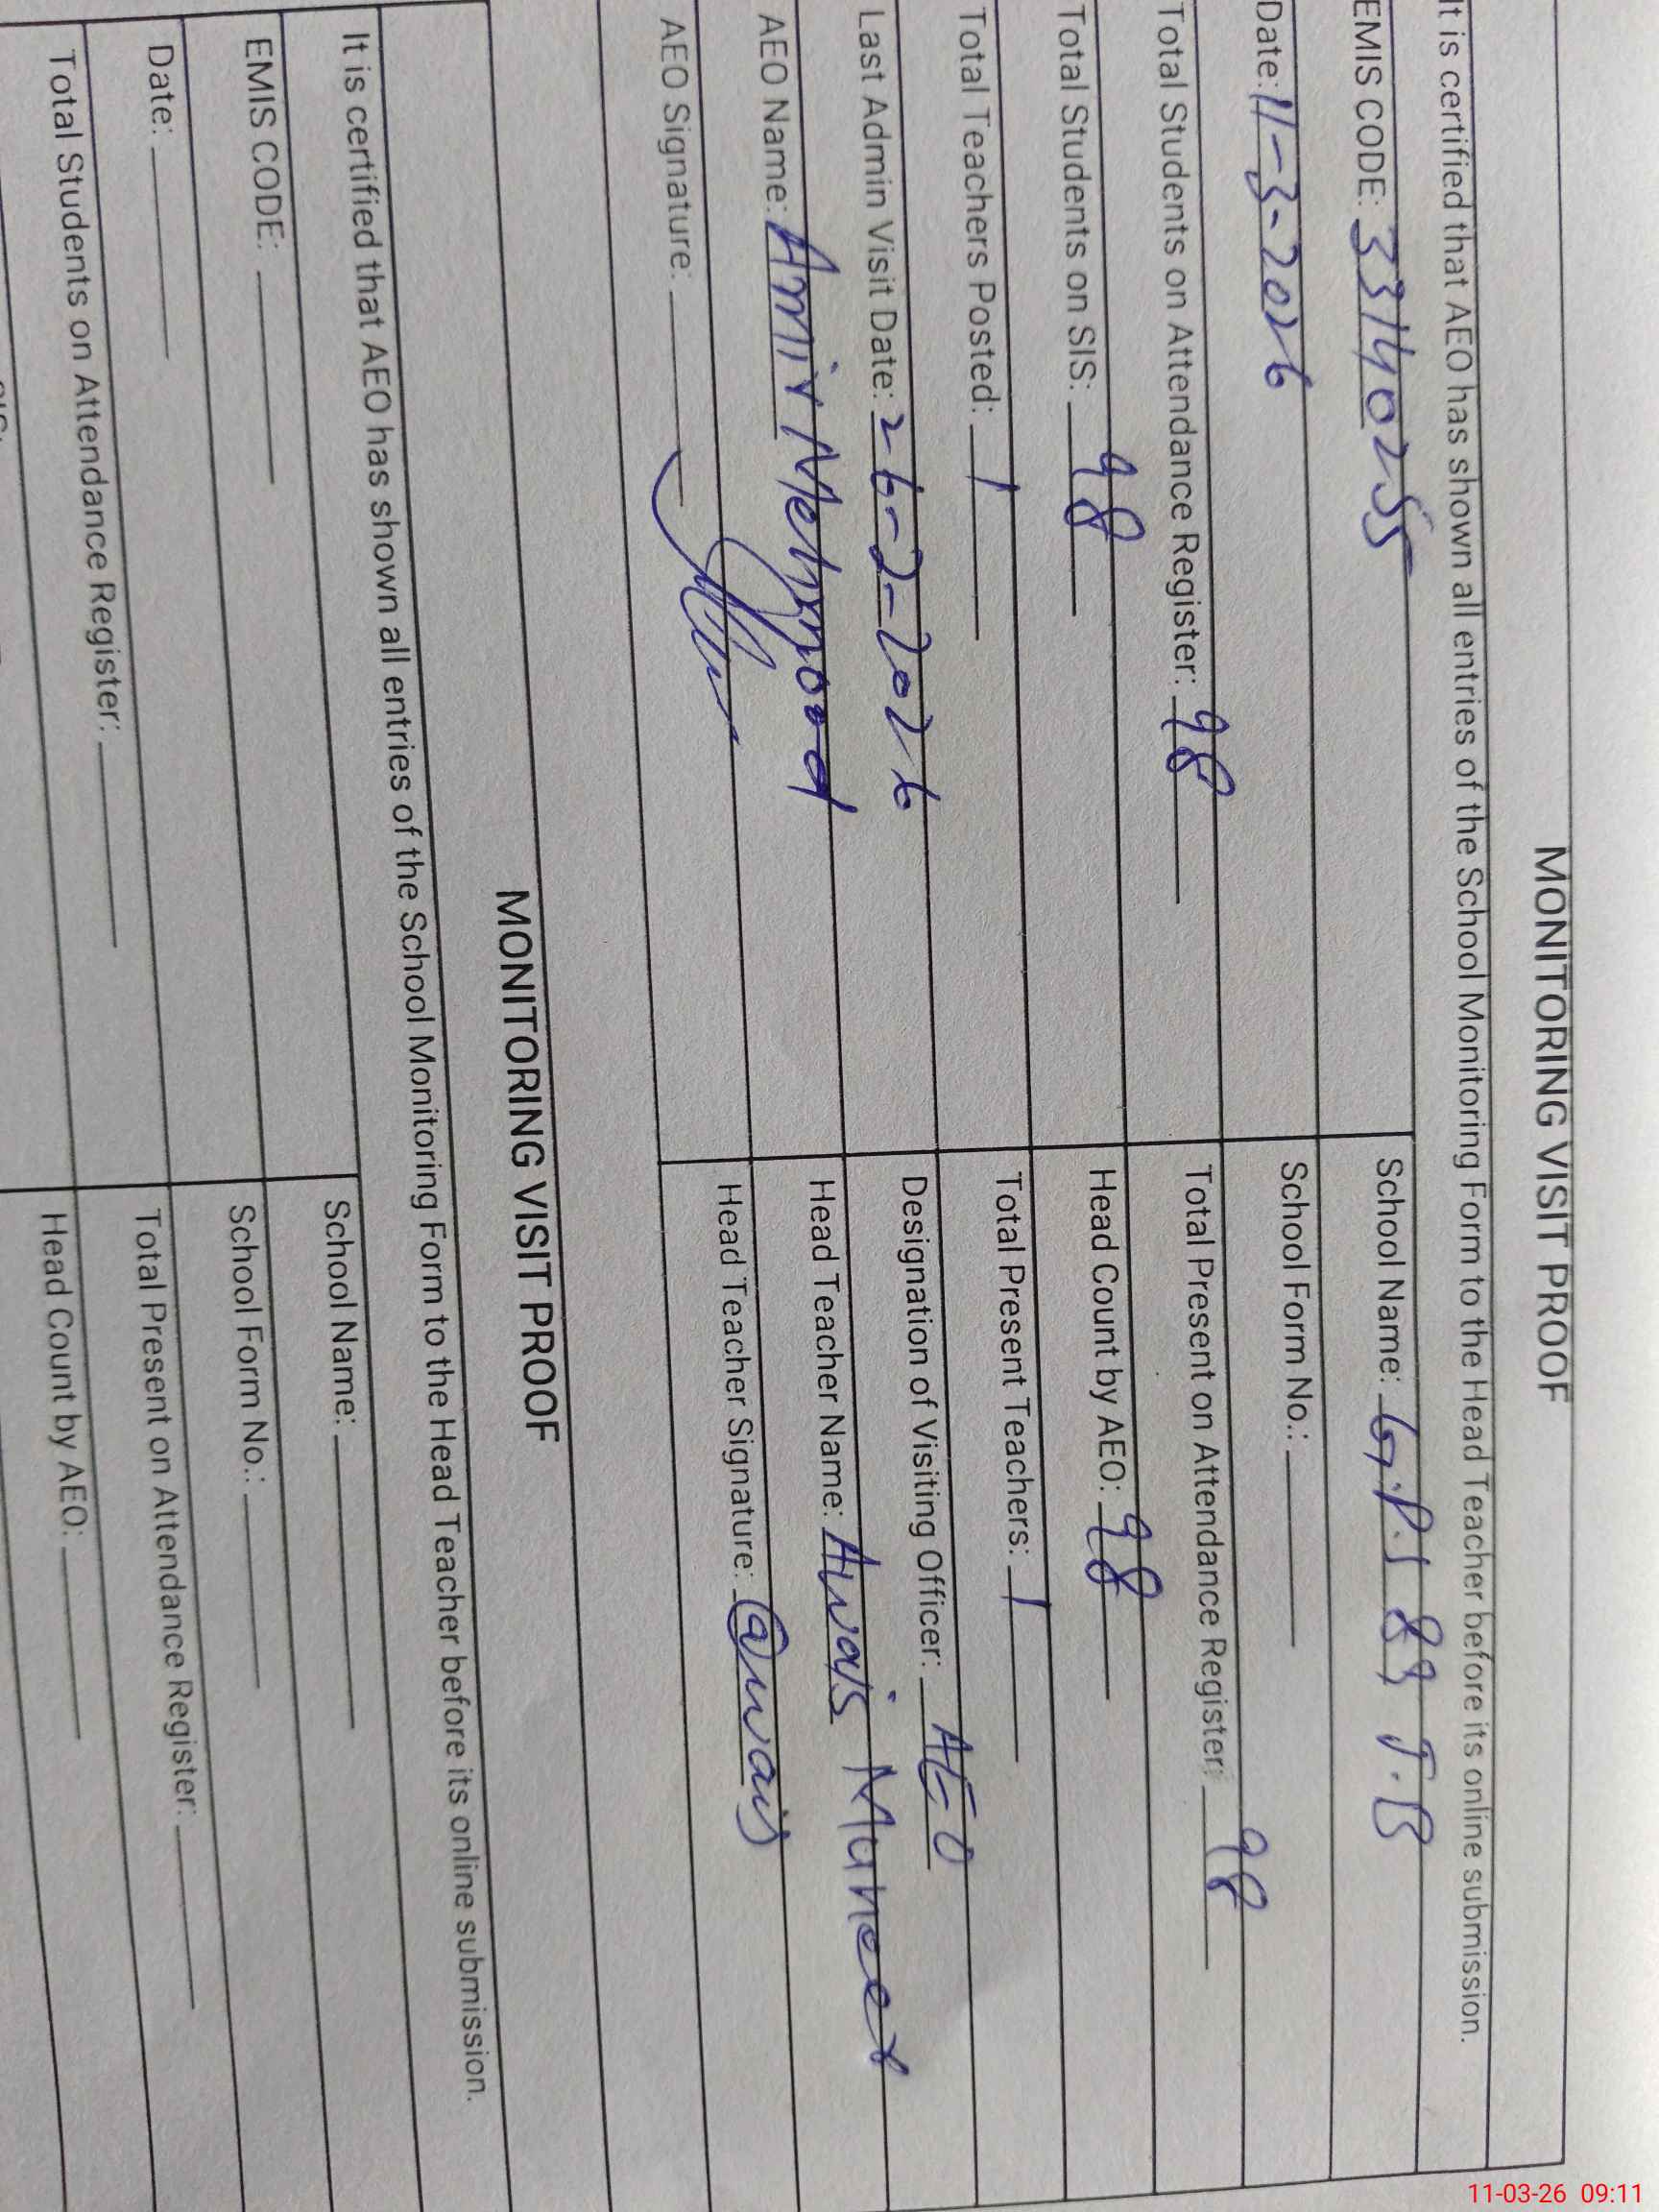 MONITORING VISIT PROOF
It is certified that AEO has shown all entries of the School Monitoring Form to the Head Teacher before its online submission.
EMIS CODE: 33140255 School Name: G.P.S 89 J.B
Date: 11-3-2026 School Form No.:
Total Students on Attendance Register: 98 Total Present on Attendance Register: 98
Total Students on SIS: 98 Head Count by AEO: 98
Total Teachers Posted: 1 Total Present Teachers: 1
Last Admin Visit Date: 26-2-2026 Designation of Visiting Officer: AEO
AEO Name: Amir Mehmood Head Teacher Name: Awais Muneer
AEO Signature: Head Teacher Signature: @wais
MONITORING VISIT PROOF
It is certified that AEO has shown all entries of the School Monitoring Form to the Head Teacher before its online submission.
EMIS CODE: School Name:
Date: School Form No.:
Total Students on Attendance Register: Total Present on Attendance Register:
Head Count by AEO:
11-03-26 09:11